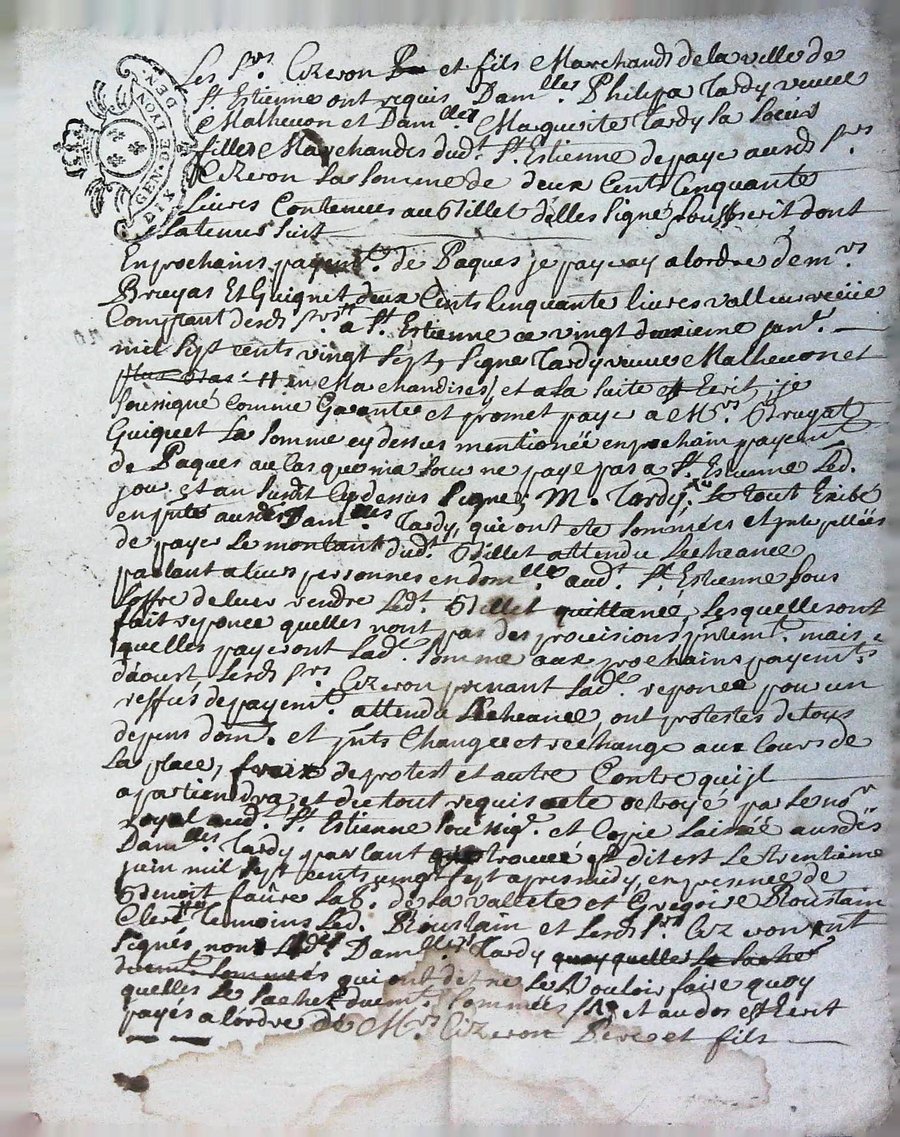 GEN. DE LYON DEN. DIX
Les Srs Cizeron Pe et fils Marchands de la ville de
St Estienne ont requis Damlles Philipa Tardy veuve
Matheuon et Damlles Marguerite Tardy sa Soeur
fille Marchandes dudt St Estienne de paye ausds Srs
Cizeron la somme de deux Cents Cinquante
Livres Contenues au Billet delles Signé Soubscrit dont
La teneur suit
En prochains payemts de Paques je payeray a lordre de mrs
Bruyas Et Guignet deux Cents Cinquante livres valleur reciüe
Comptant desds Srs a St Estienne ce vingt deuxieme janr
mil Sept cents vingt Sept, Signe Tardy veuve Matheuon et
plus bas en Marchandises, et a la Suite Est Ecrit, je
Sousigné comme Garantee et promet paye a Mrs Bruyat
Guiguet La Somme cy dessus mentionëe en prochain payemt
de Paques au Cas que ma Soeur ne paye pas a St Estienne Led.
jour Et an Susdt Cy dessus Signe; M. Tardy, Le tout Exibé
ausdes Damlles Tardy, qui ont ete Sommées et
de paye Le montant dudt Billet attendu Lecheance
parlant a leurs personnes en domlle audt St Estienne Sous
Loffre de leur rendre Ledt Billet quittancé, Lesquelles ont
fait reponce quelles nont pas des provisions mais
quelles payeront Ladt Somme aux prochains payemts
daoust Lesds Srs Cizeron prenant Lade reponce pour un
reffus de payemt attendu Lecheance, ont protestes de tous
depens dom. et Change et rechange aux Cours de
La place, fraix de protest et autre Contre qui Jl
apartiendra, et du tout requis acte octroyé par Le nore
royal audt St Estienne Sousige et Copie Laissée ausdes
Damlles Tardy parlant que trouvé et dit est Le trentieme
juin mil Sept cents vingt Sept apres midy, en presence de
Benoit faûre La B. de La Vallete et Gregoire Roustain
Clerc Temoins Led. Roustain et Lesds Srs Cizeron ont
Signés, non Lesds Damlles Tardy quoy quelles Le Sache
duemt Sommées qui ont dit ne Le Vouloir faire quoy
quelles Le Sachet duemt Sommées et au dos est Ecrit
payés a lordre de Mrs Cizeron Pere et fils